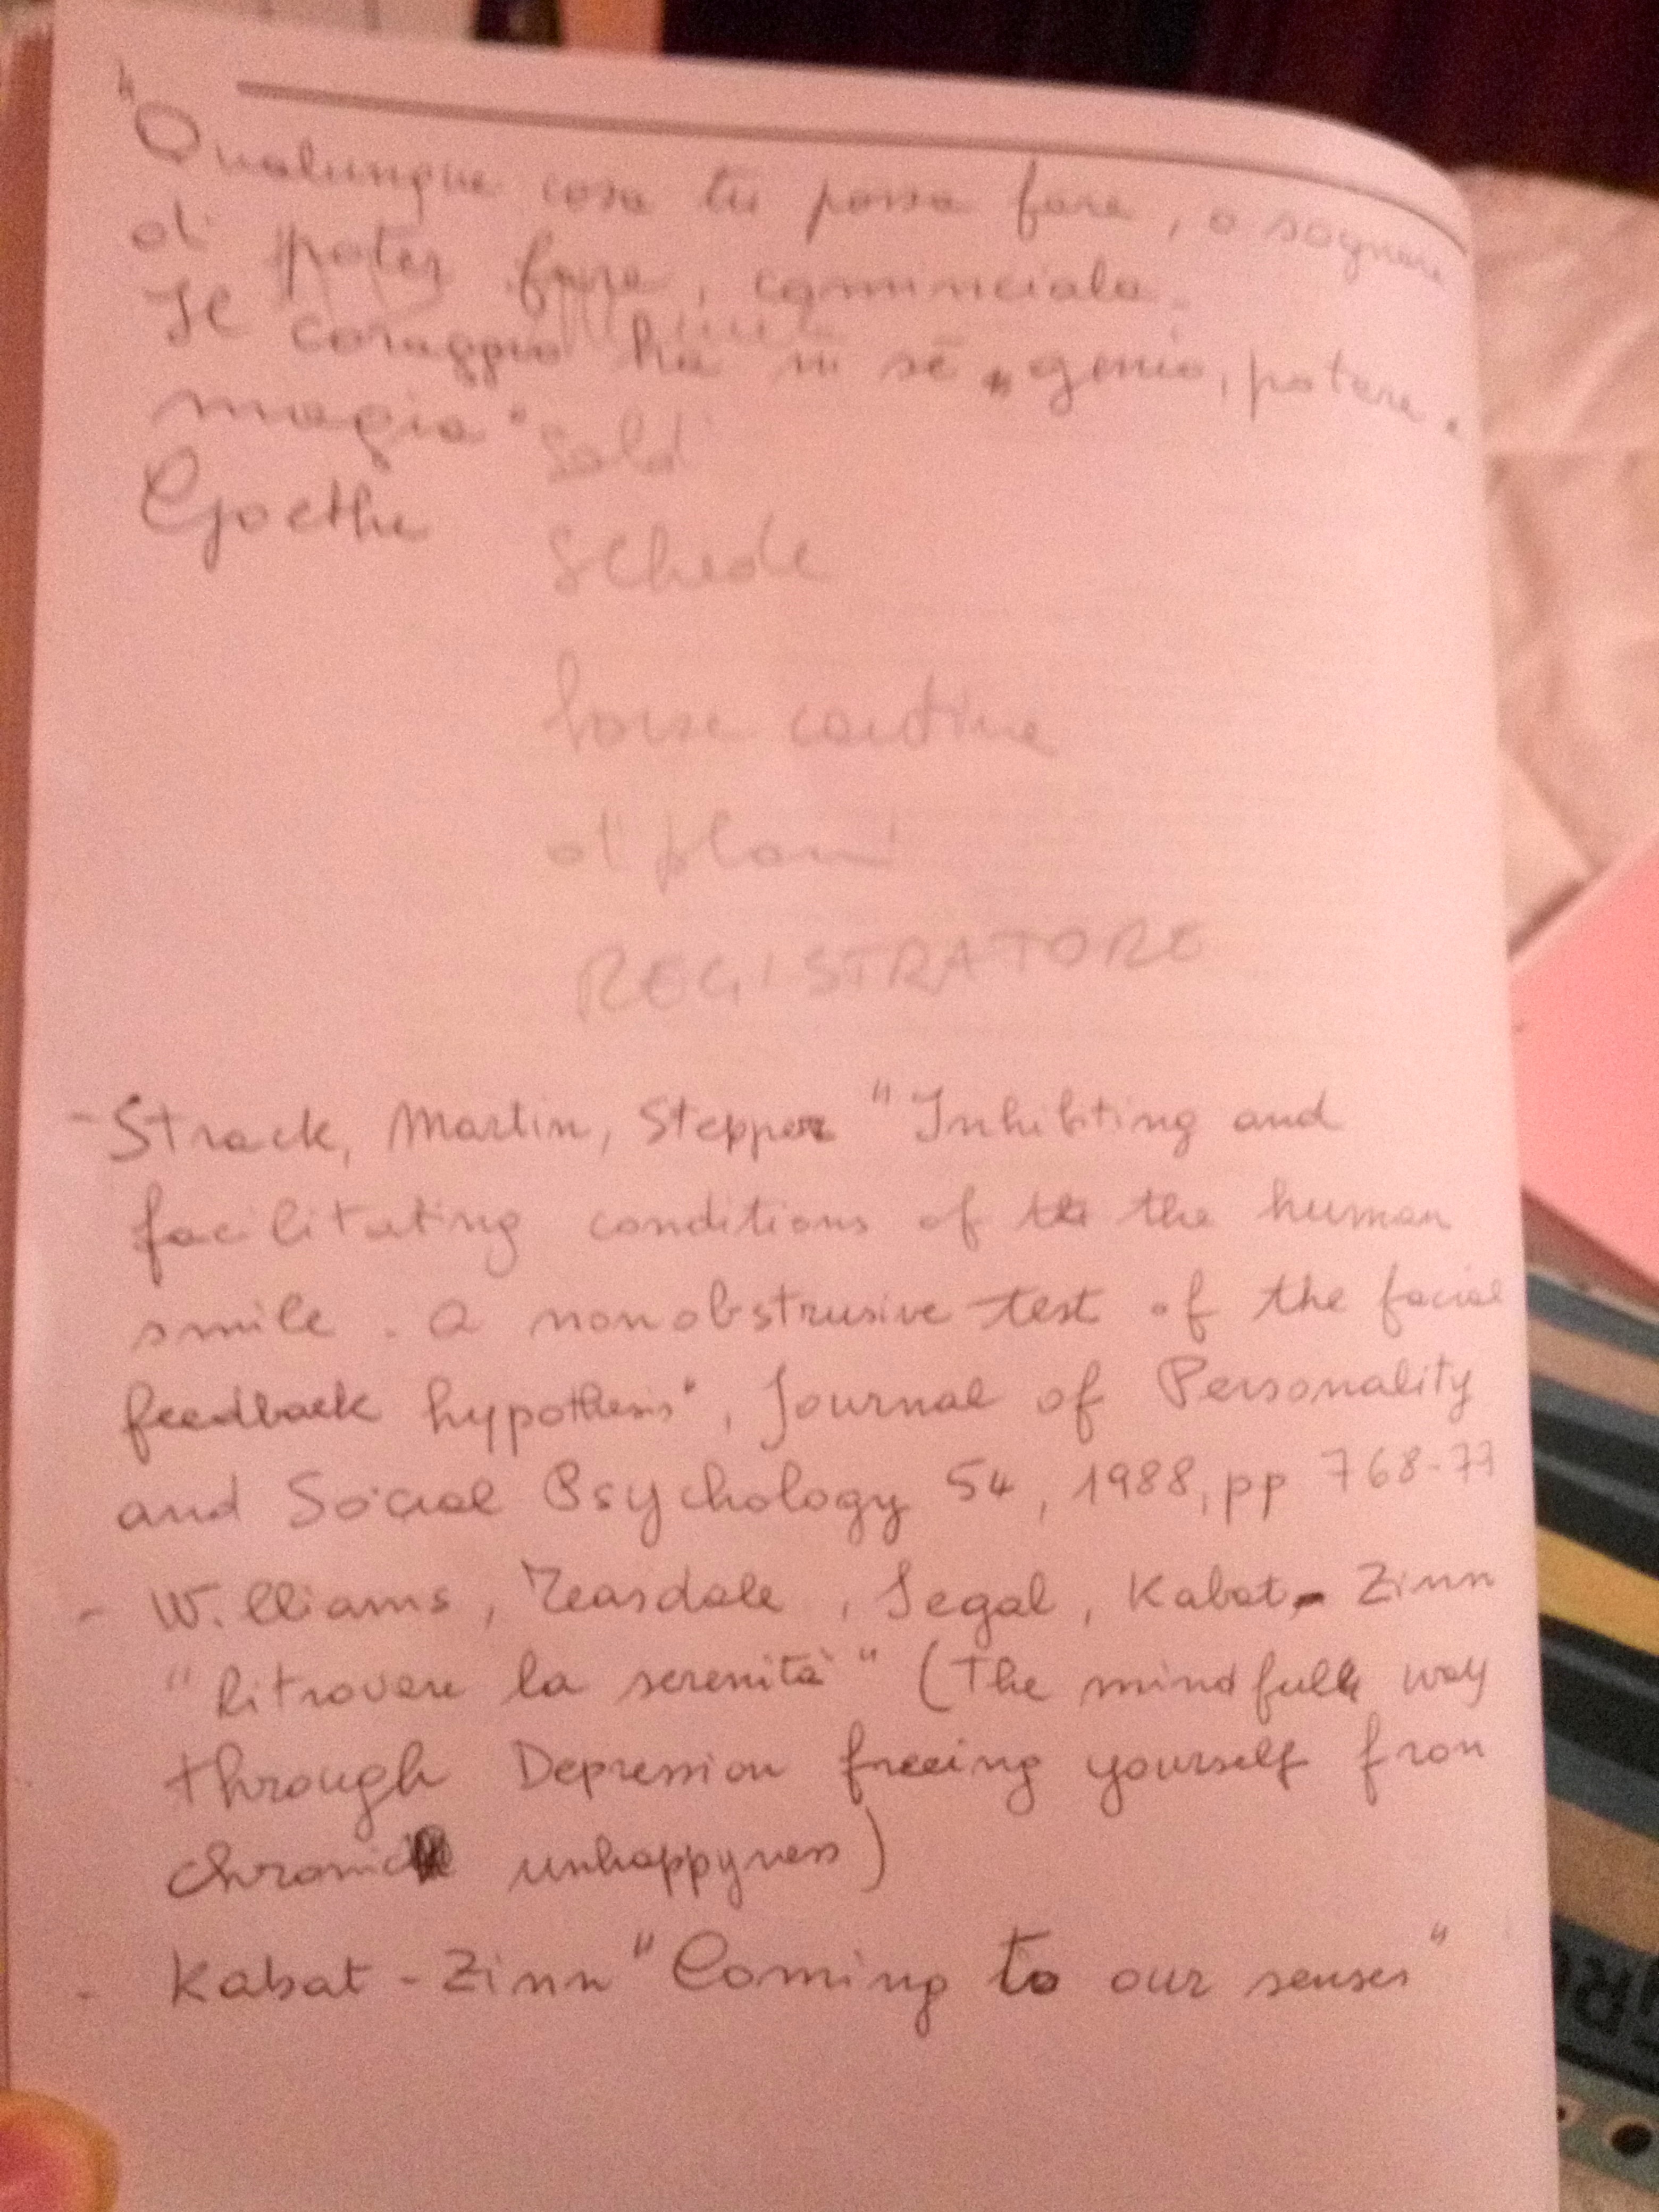 "Qualunque cosa tu possa fare, o sognare
di poter fare, cominciala.
Il coraggio ha in sé "genio, potere e
magia"
Goethe
Soldi
Schede
REGISTRATORE
- Strack, Martin, Stepper "Inhibiting and
facilitating conditions of the human
smile. a nonobstrusive test of the facial
feedback hypothesis", Journal of Personality
and Social Psychology 54, 1988, pp 768-77
- Williams, Teasdale, Segal, Kabat-Zinn
"Ritrovare la serenità" (The mindfull way
through Depression freeing yourself from
chronic unhappyness)
- Kabat-Zinn "Coming to our senses"